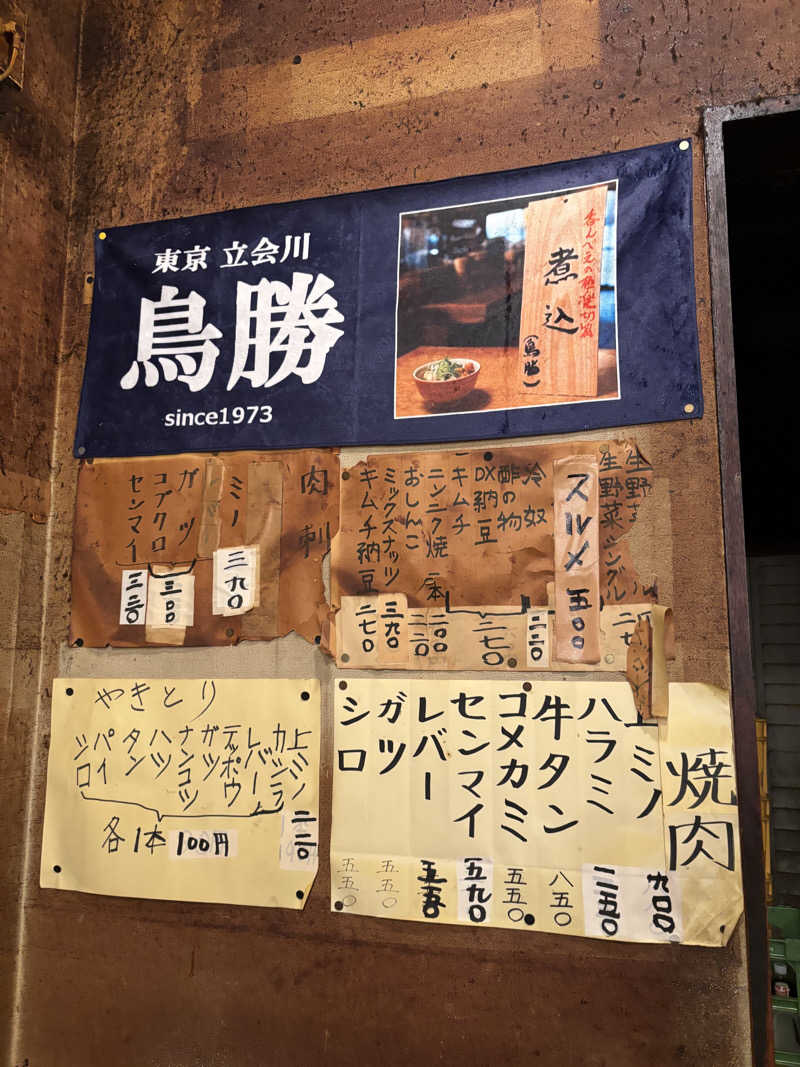 東京 立会川
鳥勝
since1973
煮込
(鳥勝)
肉刺
ミノ 三九〇
ガツ
コブクロ
センマイ
三〇〇
三二〇
生野菜シングル
スルメ 五〇〇
冷奴
酢の物
DX納豆
キムチ
ニンニク焼一本
おしんこ
ミックスナッツ
キムチ納豆
二二〇
二七〇
二〇〇
二二〇
三九〇
二七〇
やきとり
上ミノ 二二〇
カシラ
レバー
テッポウ
ガツ
ナンコツ
ハツ
タン
パイ
シロ
各1本 100円
焼肉
上ミノ 九〇〇
ハラミ 二五〇
牛タン 八五〇
コメカミ 五五〇
センマイ 五九〇
レバー 五五〇
ガツ 五五〇
シロ 五五〇